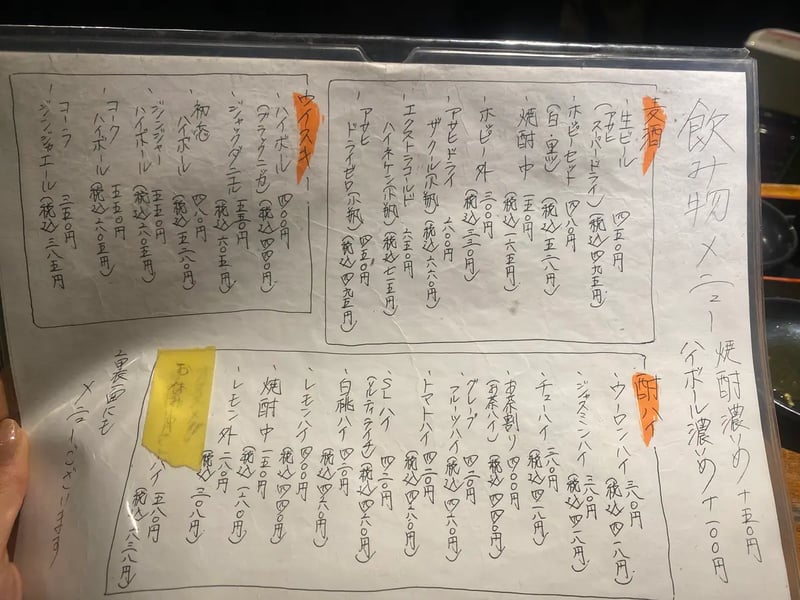 飲み物メニュー
焼酎濃いめ +五〇円
ハイボール濃いめ +一〇〇円
麦酒
生ビール 四五〇円
(アサヒスーパードライ) (税込四九五円)
ホッピーセット 四八〇円
(白・黒) (税込五二八円)
焼酎中 一五〇円
(税込一六五円)
ホッピー外 三〇〇円
(税込三三〇円)
アサヒドライ
ザクール(小瓶) 六〇〇円
(税込六六〇円)
エクストラコールド
ハイネケン(小瓶) 六五〇円
(税込七一五円)
アサヒ
ドライゼロ(小瓶) 四五〇円
(税込四九五円)
ウイスキー
ハイボール 四〇〇円
(ブラックニッカ) (税込四四〇円)
ジャックダニエル 五五〇円
(税込六〇五円)
初恋
ハイボール 四八〇円
(税込五二八円)
ジンジャー
ハイボール 五五〇円
(税込六〇五円)
コーク
ハイボール 五五〇円
(税込六〇五円)
コーラ
ジンジャエール 三五〇円
(税込三八五円)
酎ハイ
ウーロンハイ 三八〇円
(税込四一八円)
ジャスミンハイ 三八〇円
(税込四一八円)
チューハイ 三八〇円
(税込四一八円)
お茶割り 四〇〇円
(お茶ハイ) (税込四四〇円)
グレープ
フルーツハイ 四二〇円
(税込四六〇円)
トマトハイ 四二〇円
(税込四六〇円)
SLハイ 四二〇円
(税込四六〇円)
白桃ハイ 四二〇円
(税込四六〇円)
レモンハイ 四〇〇円
(税込四四〇円)
焼酎中 一五〇円
レモン外 二八〇円
(税込三〇八円)
ハイ 五八〇円
(税込六三八円)
裏面にも
メニューございます